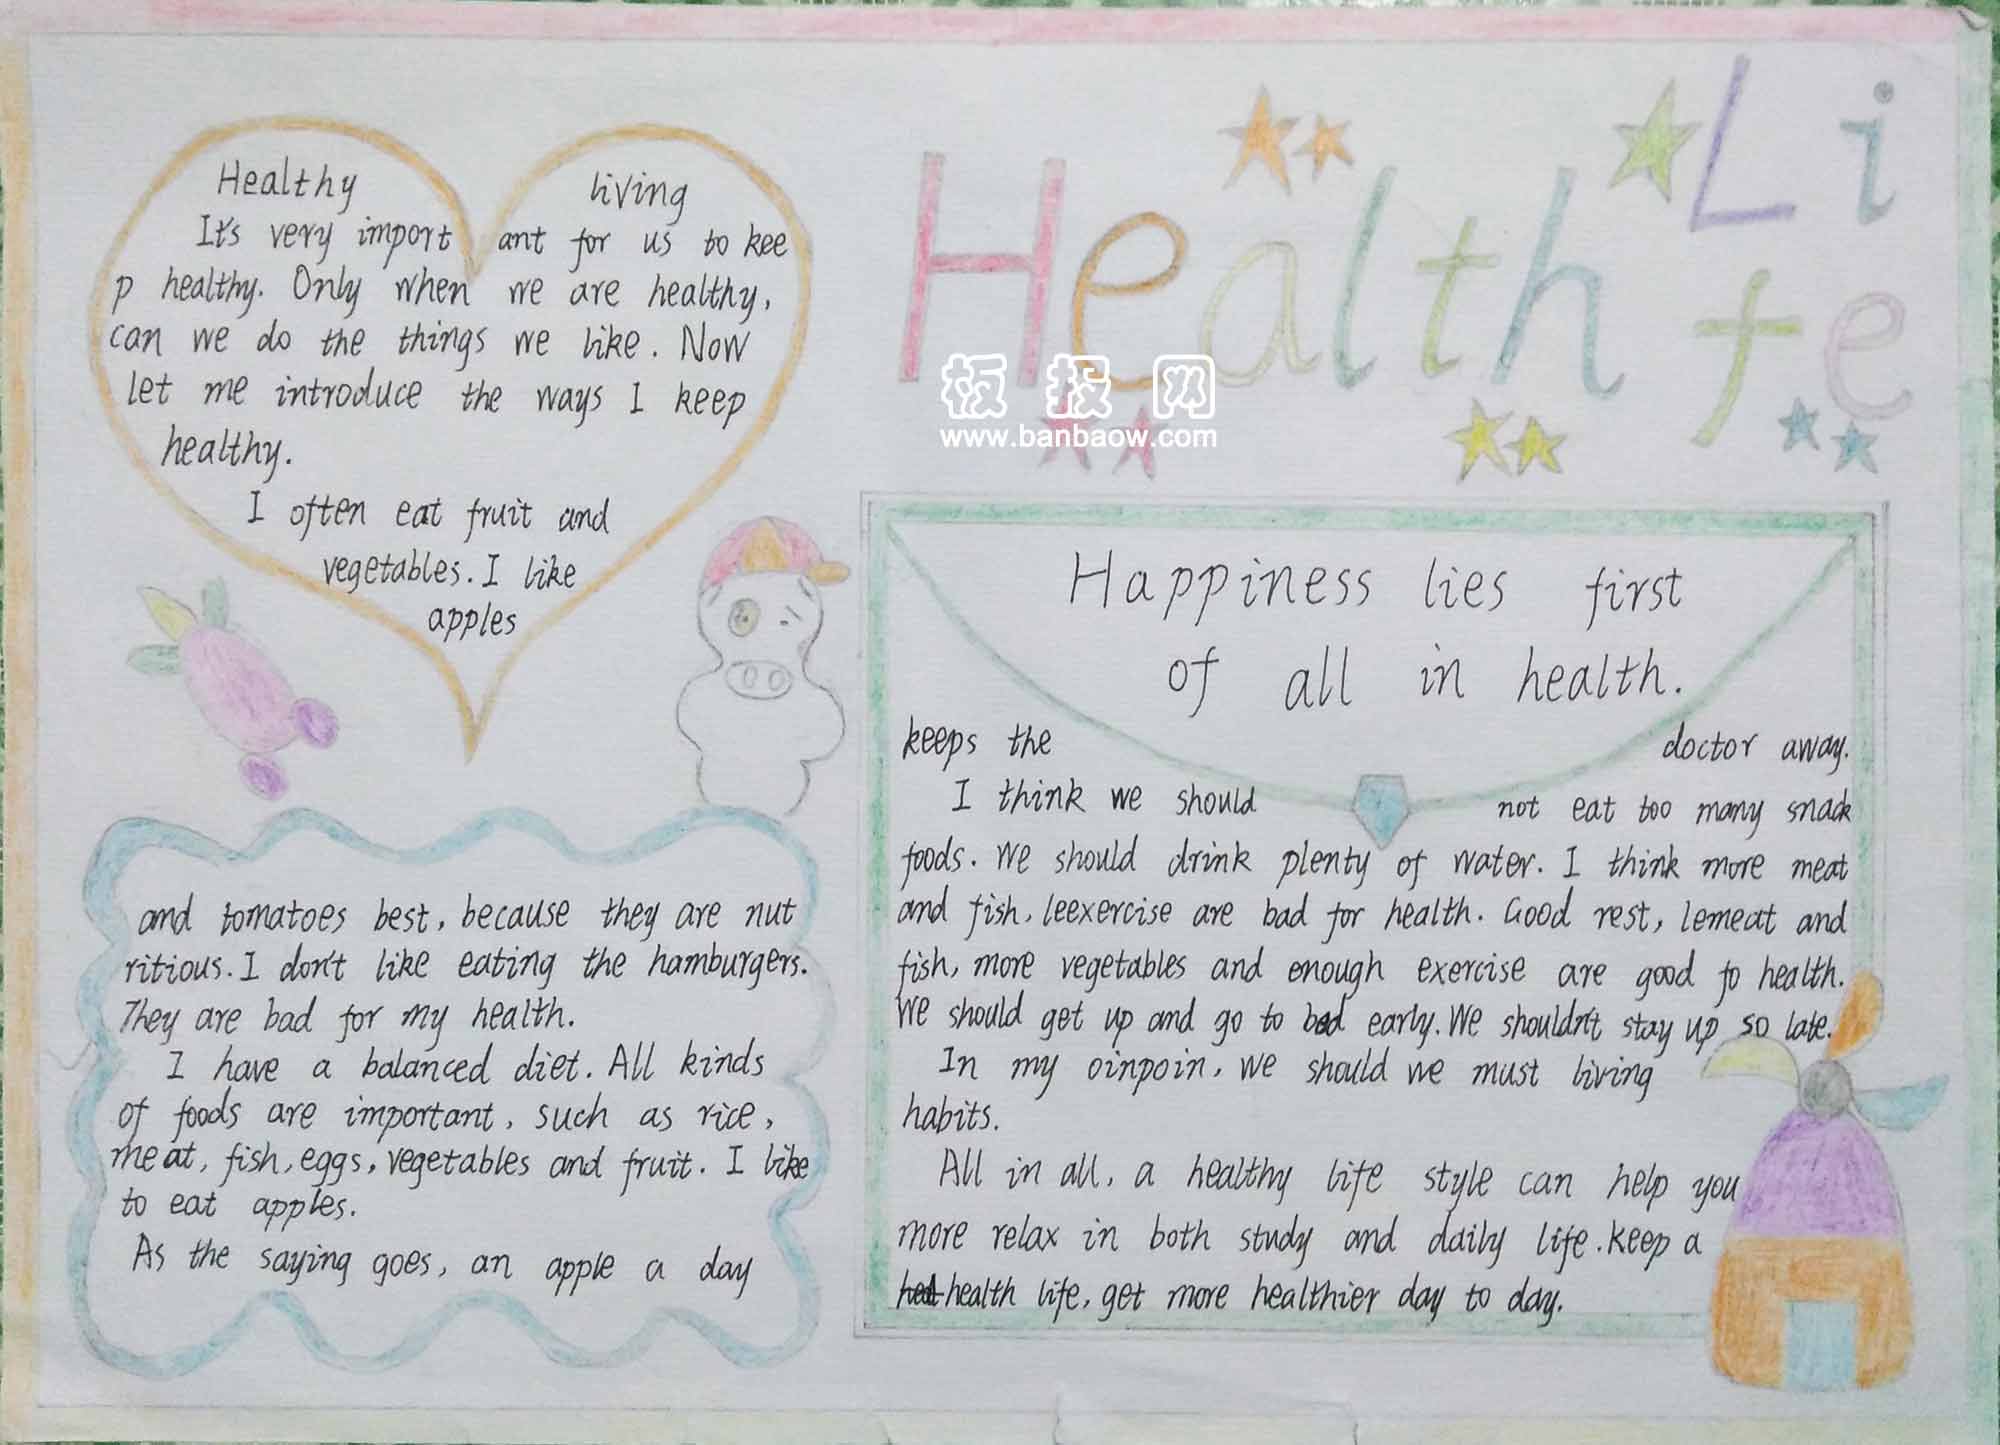 Health Life
板报网
www.banbaow.com
Healthy living
It's very import ant for us to kee
p healthy. Only when we are healthy,
can we do the things we like. Now
let me introduce the ways I keep
healthy.
I often eat fruit and
vegetables. I like
apples
and tomatoes best, because they are nut
ritious. I don't like eating the hamburgers.
They are bad for my health.
I have a balanced diet. All kinds
of foods are important, such as rice,
meat, fish, eggs, vegetables and fruit. I like
to eat apples.
As the saying goes, an apple a day
Happiness lies first
of all in health.
keeps the doctor away.
I think we should not eat too many snack
foods. We should drink plenty of water. I think more meat
and fish, leexercise are bad for health. Good rest, lemeat and
fish, more vegetables and enough exercise are good fo health.
We should get up and go to bed early. We shouldn't stay up so late.
In my oinpoin, we should we must living
habits.
All in all, a healthy life style can help you
more relax in both study and daily life. Keep a
health life, get more healthier day to day.